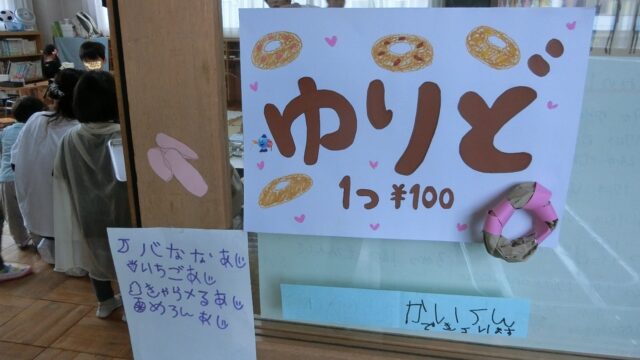 ゆりど
1つ ¥100
バななあじ
いちごあじ
きゃらメるあじ
めろんあじ
かいてん